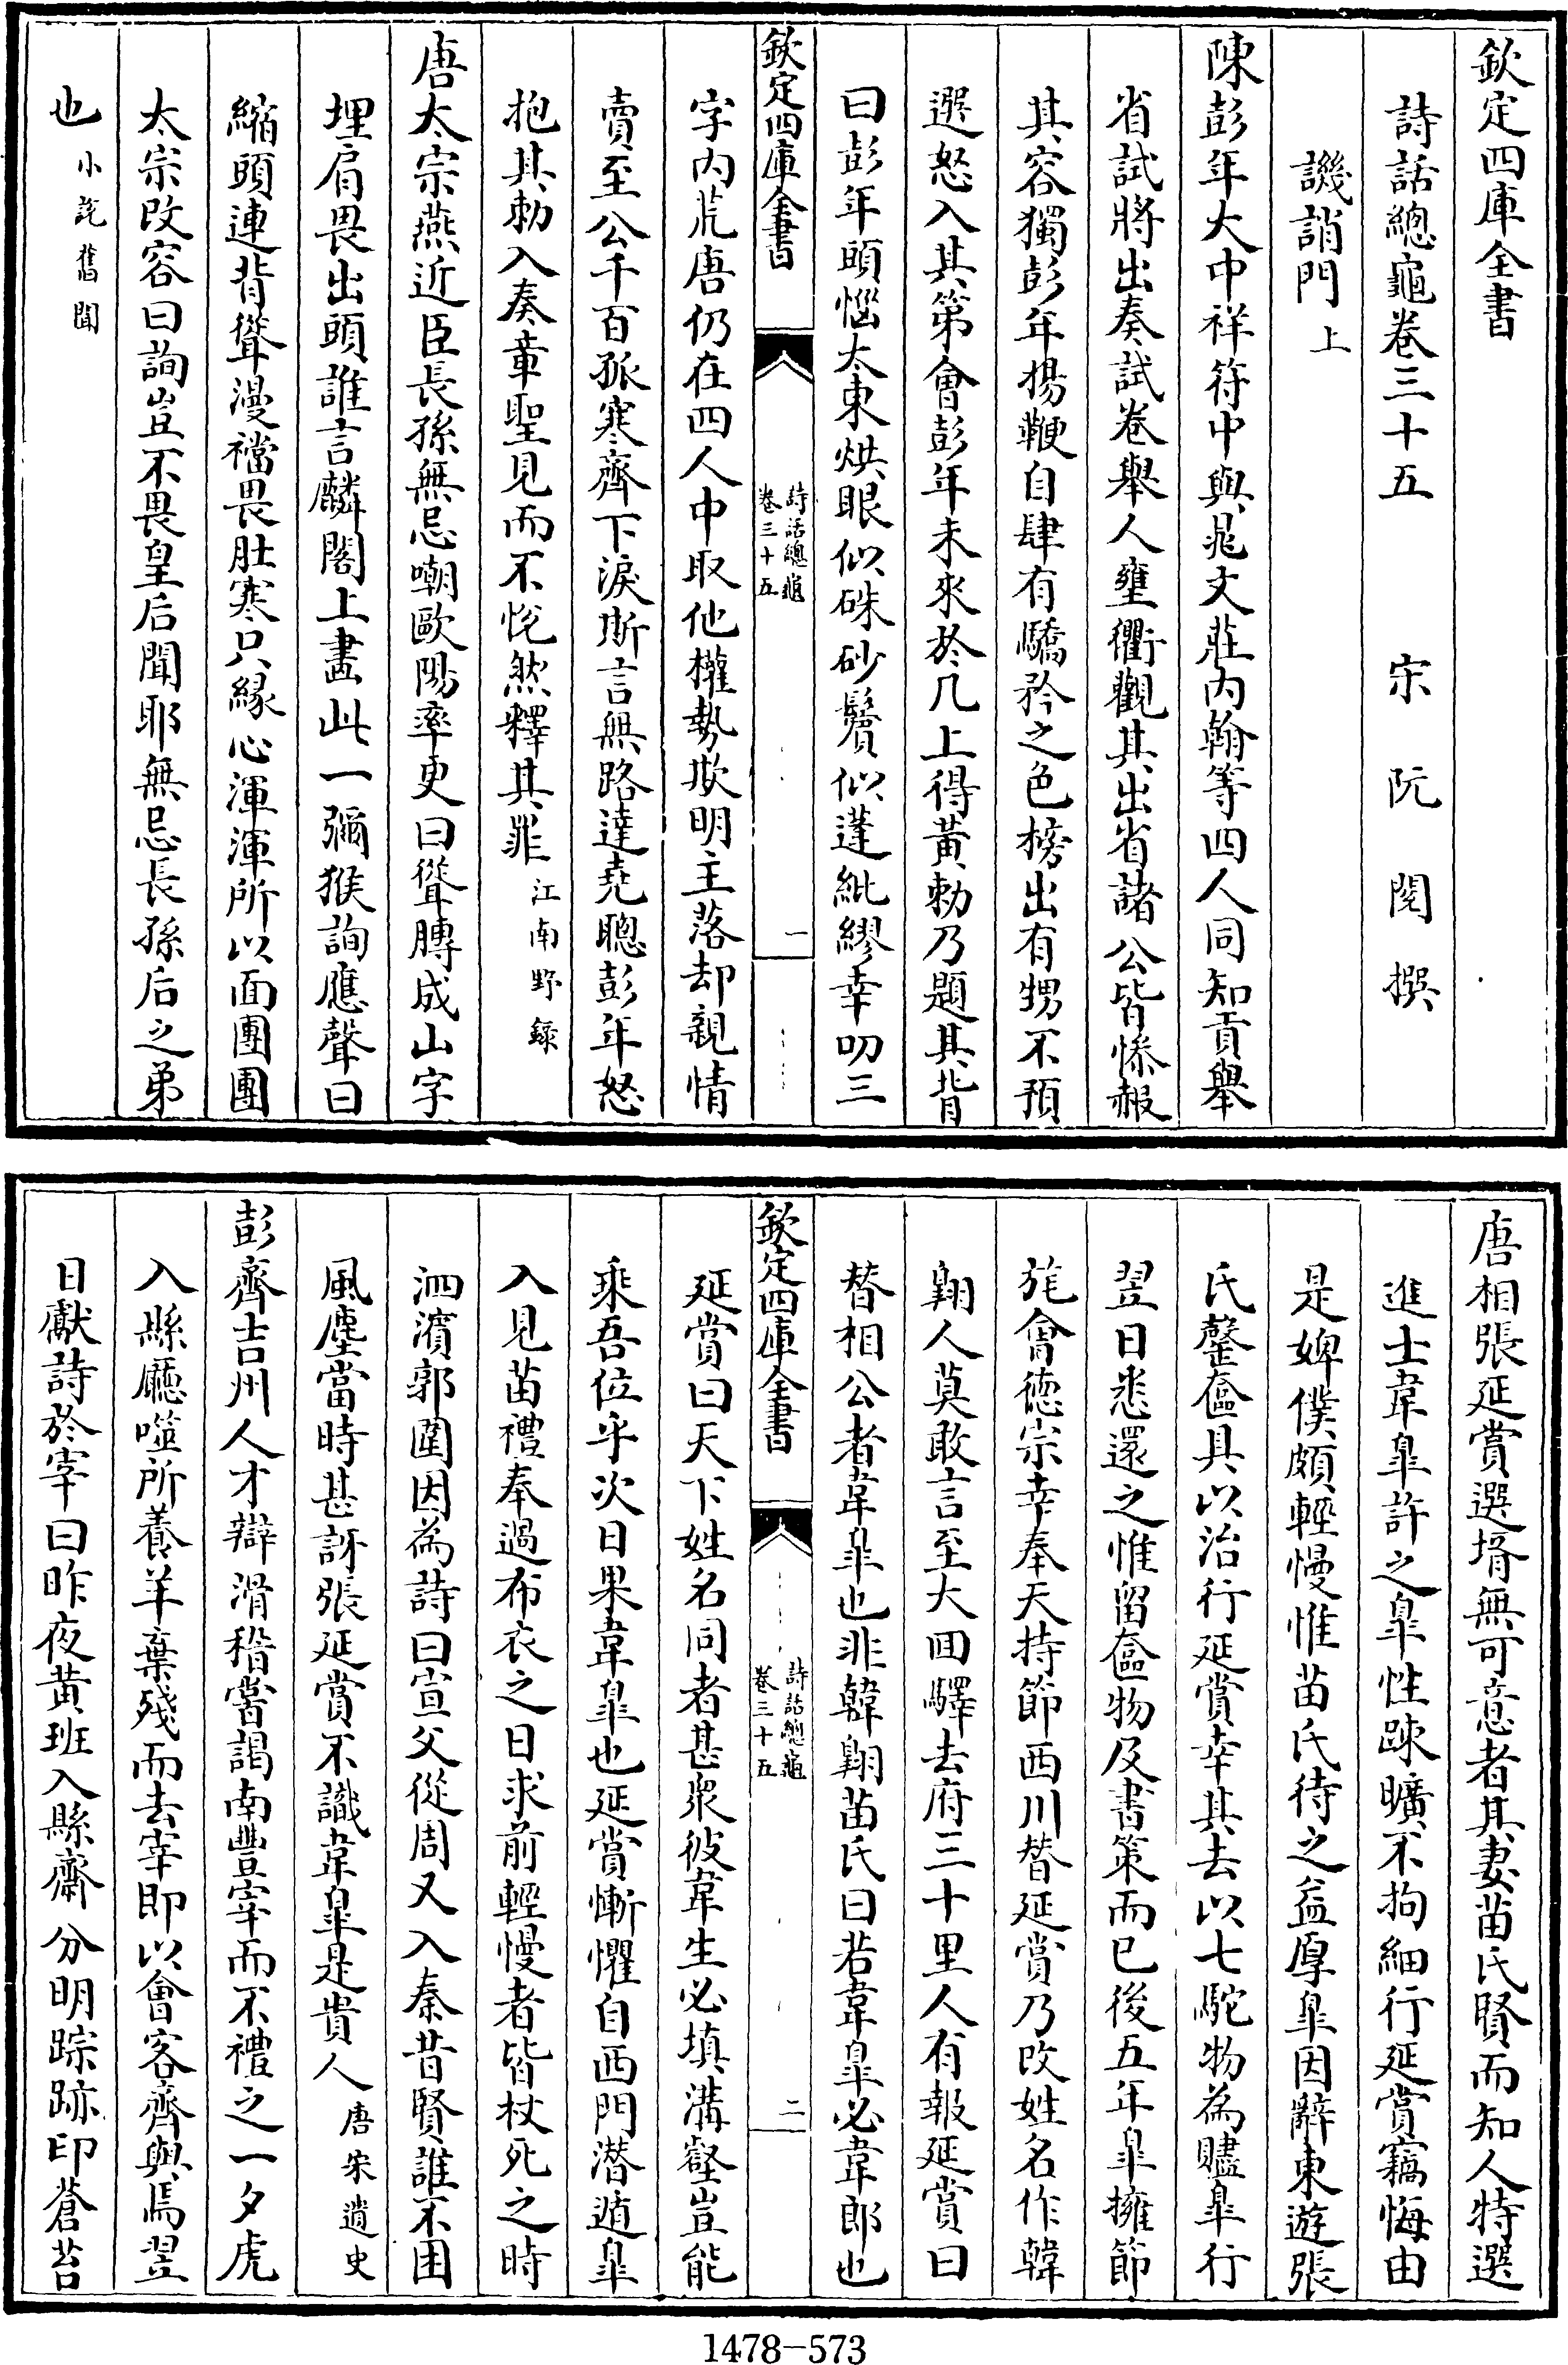 欽定四庫全書
詩話總龜卷三十五　宋　阮　閱　撰
譏誚門上
陳彭年大中祥符中與晁文莊内翰等四人同知貢舉
省試將出奏試卷舉人壅衢觀其出省諸公皆慘赧
其容獨彭年揚鞭自肆有驕矜之色榜出有甥不預
選怒入其第會彭年未來於几上得黃勅乃題其背
曰彭年頭惱太東烘眼似硃砂鬢似蓬紕繆幸叨三
欽定四庫全書
詩話總龜
卷三十五
一
字内荒唐仍在四人中取他權勢欺明主落却親情
賣至公千百孤寒齊下淚斯言無路達堯聰彭年怒
抱其勅入奏章聖見而不悅然釋其罪江南野錄
唐太宗燕近臣長孫無忌嘲歐陽率更曰聳膊成山字
埋肩畏出頭誰言麟閣上畫此一獼猴詢應聲曰
縮頭連背聳漫襠畏肚寒只緣心渾渾所以面團團
太宗改容曰詢豈不畏皇后聞耶無忌長孫后之弟
也小說舊聞
唐相張延賞選壻無可意者其妻苗氏賢而知人特選
進士韋臯許之臯性踈曠不拘細行延賞竊悔由
是婢僕頗輕慢惟苗氏待之益厚臯因辭東遊張
氏罄奩具以治行延賞幸其去以七駝物為贐臯行
翌日悉還之惟留奩物及書策而已後五年臯擁節
旄會德宗幸奉天持節西川替延賞乃改姓名作韓
翺人莫敢言至大囬驛去府三十里人有報延賞曰
替相公者韋臯也非韓翺苗氏曰若韋臯必韋郎也
欽定四庫全書
詩話總龜
卷三十五
二
延賞曰天下姓名同者甚衆彼韋生必填溝壑豈能
乘吾位乎次日果韋臯也延賞慚懼自西門潛遁臯
入見苗禮奉過布衣之日求前輕慢者皆杖死之時
泗濱郭圍因為詩曰宣父從周又入秦昔賢誰不困
風塵當時甚訝張延賞不識韋臯是貴人唐宋遺史
彭齊吉州人才辯滑稽嘗謁南豐宰而不禮之一夕虎
入縣廳噬所養羊棄殘而去宰即以會客齊與焉翌
日獻詩於宰曰昨夜黃班入縣齋分明踪跡印蒼苔
1478-573